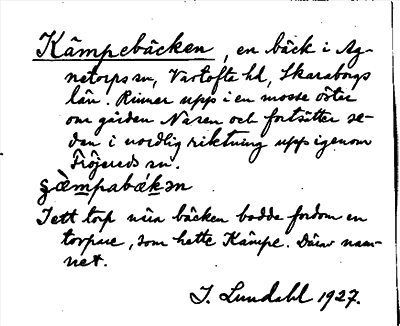 Kämpebäcken, en bäck i Ag-
netorps sn, Vartofte hd, Skaraborgs
län. Rinner upp i en mosse öster
om gården Näsen och fortsätter se-
dan i nordlig riktning upp igenom
Fröjereds sn.
I ett torp nära bäcken bodde fordom en
torpare, som hette Kämpe. Därav nam-
net.
J. Lundahl 1927.